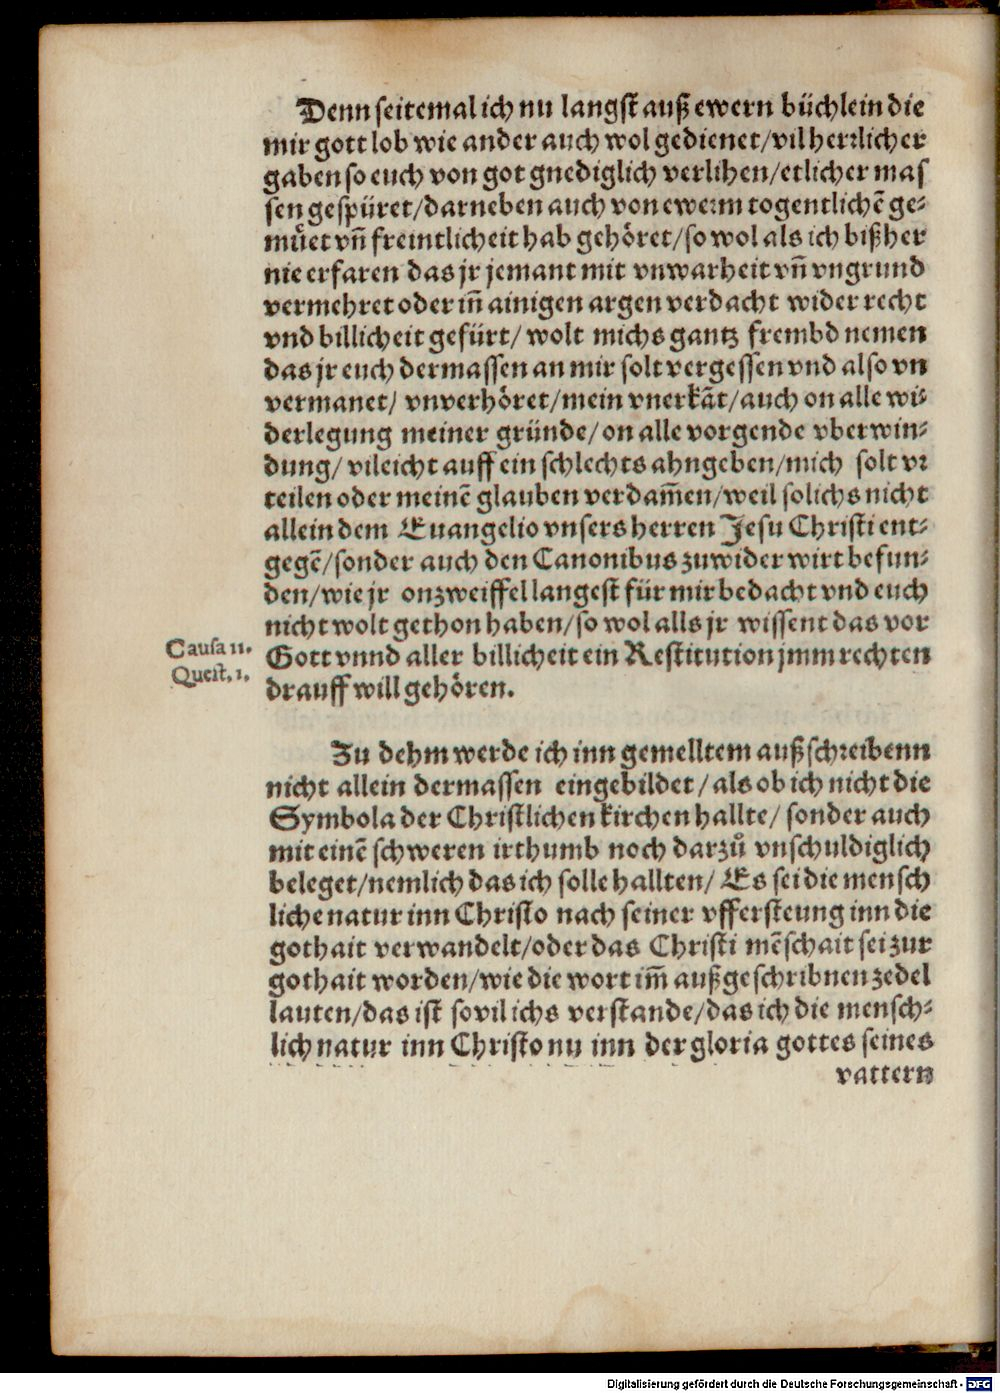 Denn seitemal ich nu langst auß ewern büchlein die
mir gott lob wie ander auch wol gedienet/vil herꝛlicher
gaben so euch von got gnediglich verlihen/etlicher mas
sen gespüret/darneben auch von eweꝛm togentlichē ge⸗
muͤet vñ freintlicheit hab gehöret/so wol als ich bißher
nie erfaren das jr jemant mit vnwarheit vñ vngrund
vermehret oder iñ ainigen argen verdacht wider recht
vnd billicheit gefürt/ wolt michs gantz frembd nemen
das jr euch dermassen an mir solt vergessen vnd also vn
vermanet/ vnverhöret/mein vnerkāt/auch on alle wi⸗
derlegung meiner gründe/on alle vorgende vberwin⸗
dung/ vileicht auff ein schlechts ahngeben/mich solt vꝛ
teilen oder meinē glauben verdam̄en/weil solichs nicht
allein dem Euangelio vnsers herren Jesu Christi ent⸗
gegē/sonder auch den Canonibus zuwider wirt befun⸗
den/wie jr onzweiffel langest für mir bedacht vnd euch
nicht wolt gethon haben/so wol alls jr wissent das vor
Causa 11. Gott vnnd aller billicheit ein Restitution jmm rechten
Quest. 1. drauff will gehören.
Zu dehm werde ich inn gemelltem außschꝛeibenn
nicht allein dermassen eingebildet/als ob ich nicht die
Symbola der Christlichen kirchen hallte/ sonder auch
mit einē schweren irthumb noch darzů vnschuldiglich
beleget/nemlich das ich solle hallten/ Es sei die mensch
liche natur inn Christo nach seiner vffersteung inn die
gothait verwandelt/oder das Christi mēschait sei zur
gothait worden/wie die wort im̄ außgeschribnen zedel
lauten/das ist sovil ichs verstande/das ich die mensch⸗
lich natur inn Christo nu inn der gloria gottes seines
vattern
Digitalisierung gefördert durch die Deutsche Forschungsgemeinschaft - DFG